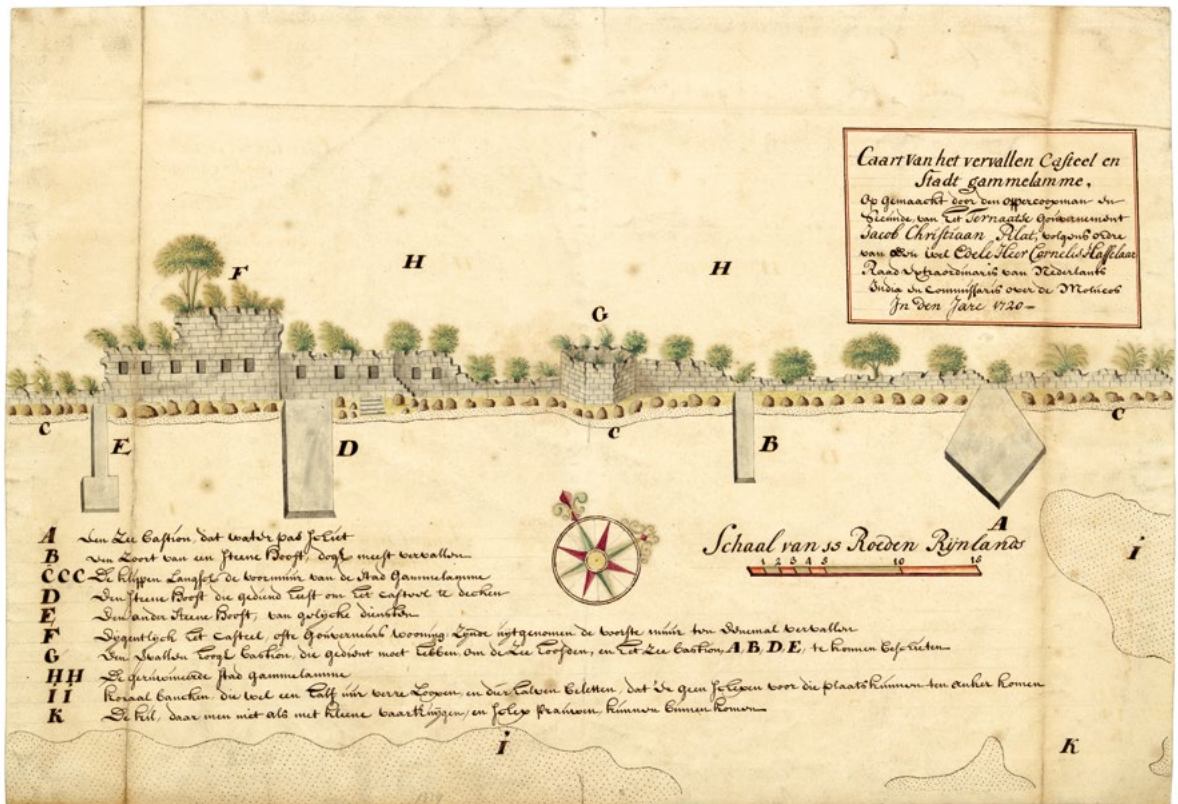 Caart van het vervallen Casteel en
Stadt gammelamme,
Op gemaackt door den oppercoopman en
Secunde, van het Ternaatse Gouvernement
Jacob Christiaan Pilat, volgens ordre
van den wel Edele Heer Cornelis Hasselaar
Raad Extraordinaris van Nederlants
India en Commissaris over de Moluccos
In den Jare 1720
H
H
F
G
C
E
D
C
B
C
A
Schaal van 15 Roeden Rijnlands
1 2 3 4 5 10 15
i
A Den Zee bastion, dat water pas
B Een Zoort van een steene Hooft, dogh meest vervallen
CCC De klippen Langst de voormuur van de stad Gammelamme
D Den steene Hooft die gediend heeft om het Casteel te decken
E Den ander steene Hooft, van gelycke diensten
F Eygentlyck het Casteel, ofte Gouverneurs wooning, zynde uytgenomen de voorste muur ten eenemal vervallen
G Den hooge bastion, die gedient moet hebben om de Zee hoofden, en het Zee bastion, A, B, D, E, te komen
HH De geruineerde stad Gammelamme
II koraal bancken, die wel een half uur verre Loopen, en dier halven beletten, dat 'er geen schepen voor die plaats kunnen ten anker komen
K De kil, daar men niet als met kleene vaartuygen, en prauwen, kunnen binnen komen
i
K